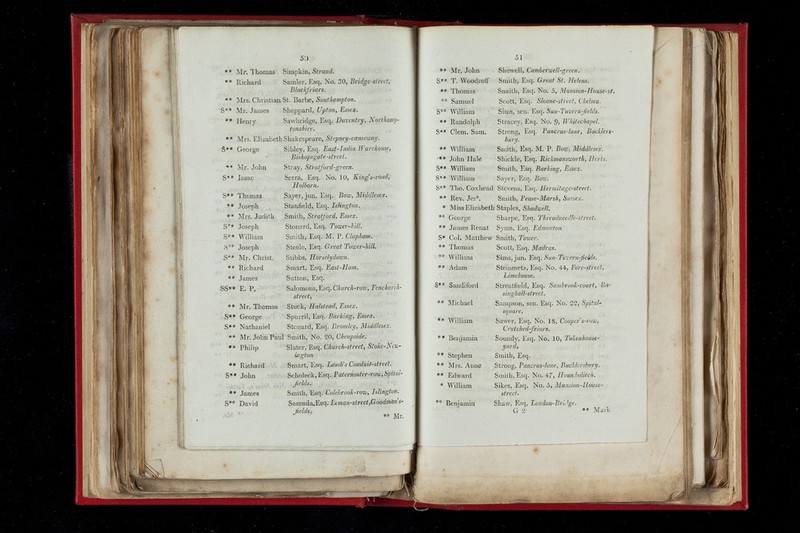 50
** Mr. Thomas Simpkin, Strand.
** Richard Samler, Esq. No. 30, Bridge-street,
Blackfriars.
** Mrs. Christian St. Barbe, Southampton.
S** Mr. James Sheppard, Upton, Essex.
** Henry Sawbridge, Esq. Daventry, Northamp-
tonshire.
** Mrs. Elizabeth Shakespeare, Stepney-causeway.
S** George Sibley, Esq. East-India Warehouse,
Bishopsgate-street.
** Mr. John Stray, Stratford-green.
S** Isaac Serra, Esq. No. 10, King's-road,
Holborn.
S** Thomas Sayer, jun. Esq. Bow, Middlesex.
** Joseph Stanfield, Esq. Islington.
** Mrs. Judith Smith, Stratford, Essex.
S** Joseph Stonard, Esq. Tower-hill.
S** William Smith, Esq. M. P. Clapham.
S** Joseph Steele, Esq. Great Tower-hill.
S** Mr. Christ. Stubbs, Horselydown.
** Richard Smart, Esq. East-Ham.
** James Sutton, Esq.
SS** E. P. Salomons, Esq. Church-row, Fenchurch-
street.
** Mr. Thomas Stock, Halstead, Essex.
S** George Spurril, Esq. Barking, Essex.
S** Nathaniel Stonard, Esq. Bromley, Middlesex.
** Mr. John Paul Smith, No. 20, Cheapside.
** Philip Slater, Esq. Church-street, Stoke-New-
ington
** Richard Smart, Esq. Lamb's Conduit-street.
S** John Scholeck, Esq. Paternoster-row, Spital-
fields.
** James Smith, Esq. Colebrook-row, Islington.
S** David Samuda, Esq. Leman-street, Goodman's-
fields.
** Mr.
51
** Mr. John Shewell, Camberwell-green.
S** T. Woodroff Smith, Esq. Great St. Helens.
** Thomas Smith, Esq. No. 5, Mansion-House-st.
** Samuel Scott, Esq. Sloane-street, Chelsea.
S** William Sims, sen. Esq. Sun-Tavern-fields.
** Randolph Stracey, Esq. No. 9, Whitechapel.
S** Clem. Sam. Strong, Esq. Pancras-lane, Bucklers-
bury.
** William Smith, Esq. M. P. Bow, Middlesex.
** John Hale Shickle, Esq. Rickmansworth, Herts.
S** William Smith, Esq. Barking, Essex.
S** William Sayer, Esq. Bow.
S** Tho. Coxhead Stevens, Esq. Hermitage-street.
** Rev. Jer*. Smith, Pease-Marsh, Sussex.
* Miss Elizabeth Staples, Shadwell.
** George Sharpe, Esq. Threadneedle-street.
** James Renat Syms, Esq. Edmonton
S* Col. Matthew Smith, Tower.
** Thomas Scott, Esq. Madras.
** William Sims, jun. Esq. Sun-Tavern-fields.
** Adam Steinmetz, Esq. No. 44, Fore-street,
Limehouse.
S** Sandiford Streatfield, Esq. Sambrook-court, Ba-
singhall-street.
** Michael Sampson, sen. Esq. No. 22, Spital-
square.
** William Sawer, Esq. No. 18, Cooper's-row,
Crutched-friars.
** Benjamin Soundy, Esq. No. 10, Tokenhouse-
yard.
** Stephen Smith, Esq.
** Mrs. Anne Strong, Pancras-lane, Bucklersbury.
** Edward Smith, Esq. No. 47, Houndsditch.
* William Sikes, Esq. No. 5, Mansion-House-
street.
** Benjamin Shaw, Esq. London-Bridge.
G 2
** Mark